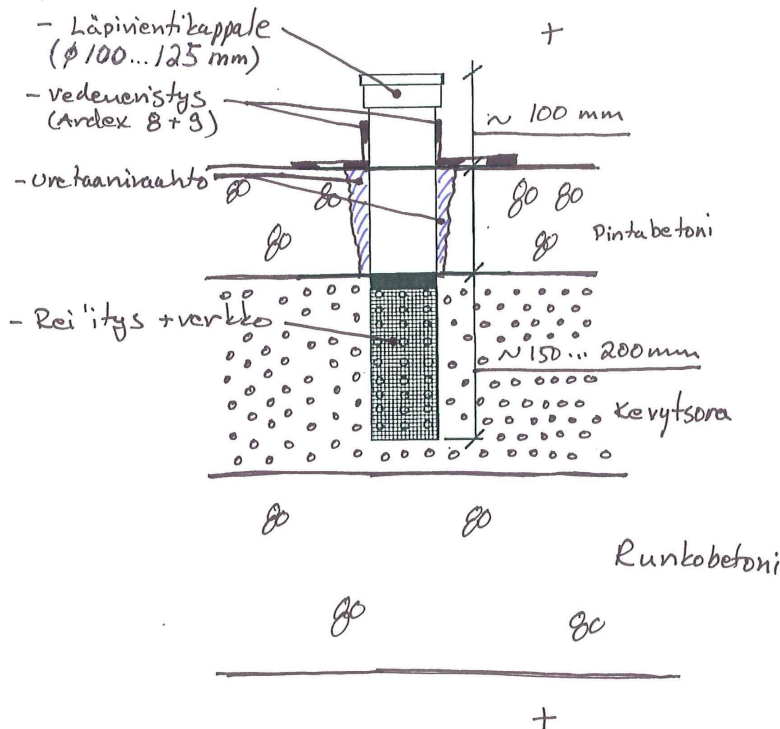 - Läpivientikappale
(ø 100...125 mm)
- vedeneristys
(Ardex 8+9)
- Uretaanivaahto
- Rei'itys + verkko
+
~ 100 mm
Pintabetoni
~ 150 ... 200 mm
Kevytsora
Runkobetoni
+